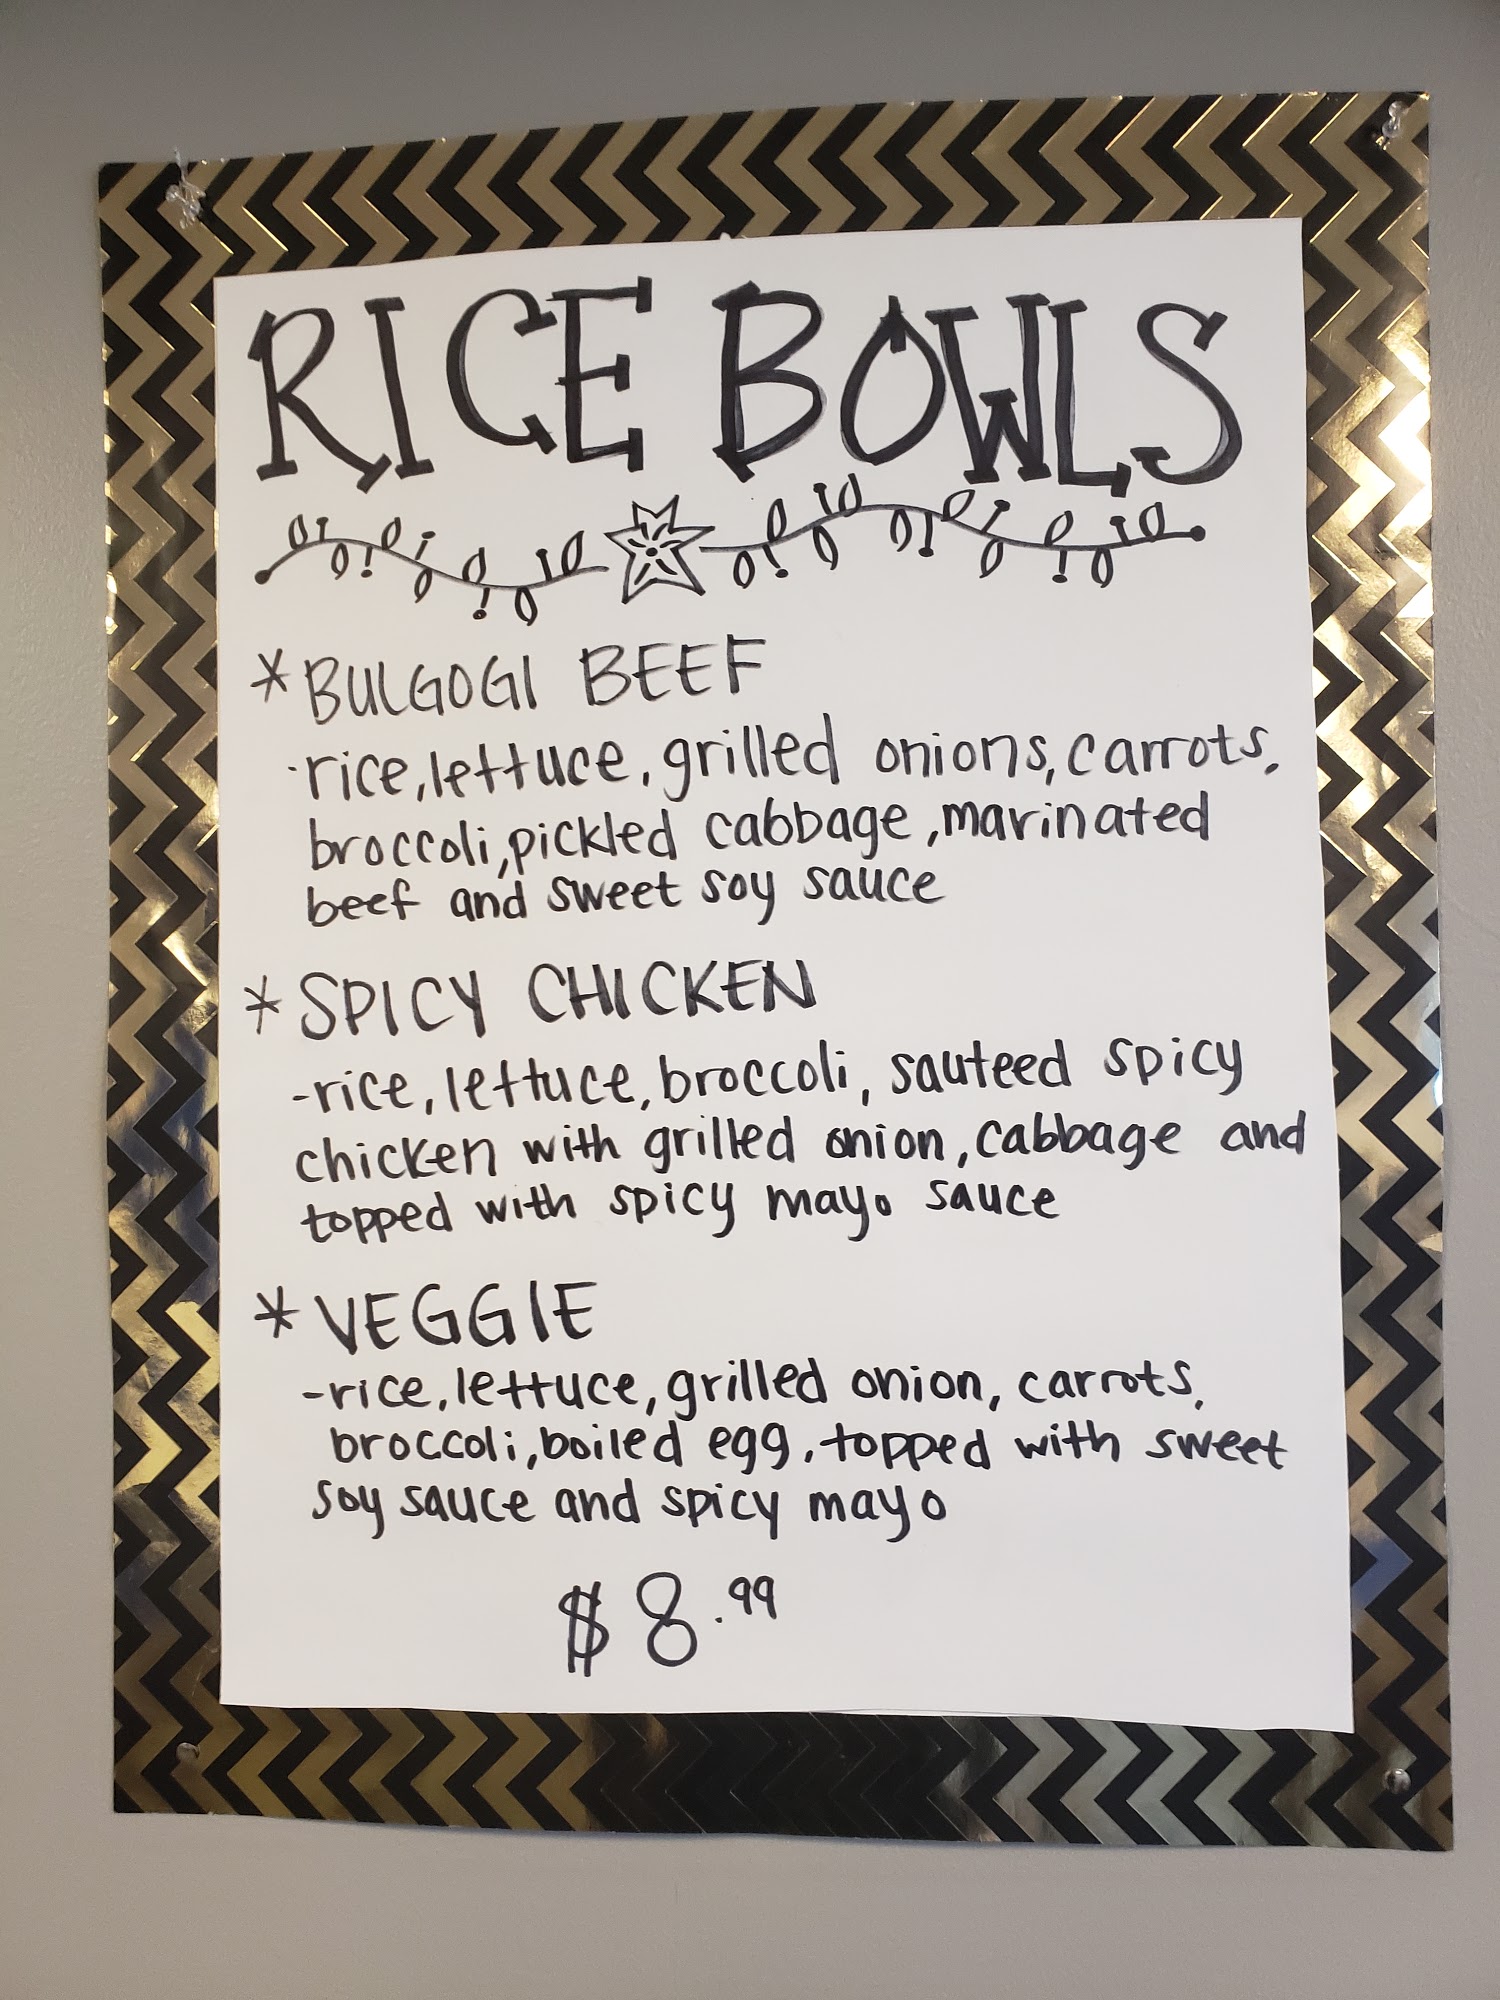 RICE BOWLS
* BULGOGI BEEF
-rice, lettuce, grilled onions, carrots,
broccoli, pickled cabbage, marinated
beef and sweet soy sauce
* SPICY CHICKEN
-rice, lettuce, broccoli, sauteed spicy
chicken with grilled onion, cabbage and
topped with spicy mayo sauce
* VEGGIE
-rice, lettuce, grilled onion, carrots,
broccoli, boiled egg, topped with sweet
soy sauce and spicy mayo
$8.99